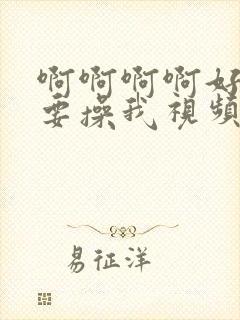 啊啊啊啊好
要操我视頻
易征洋